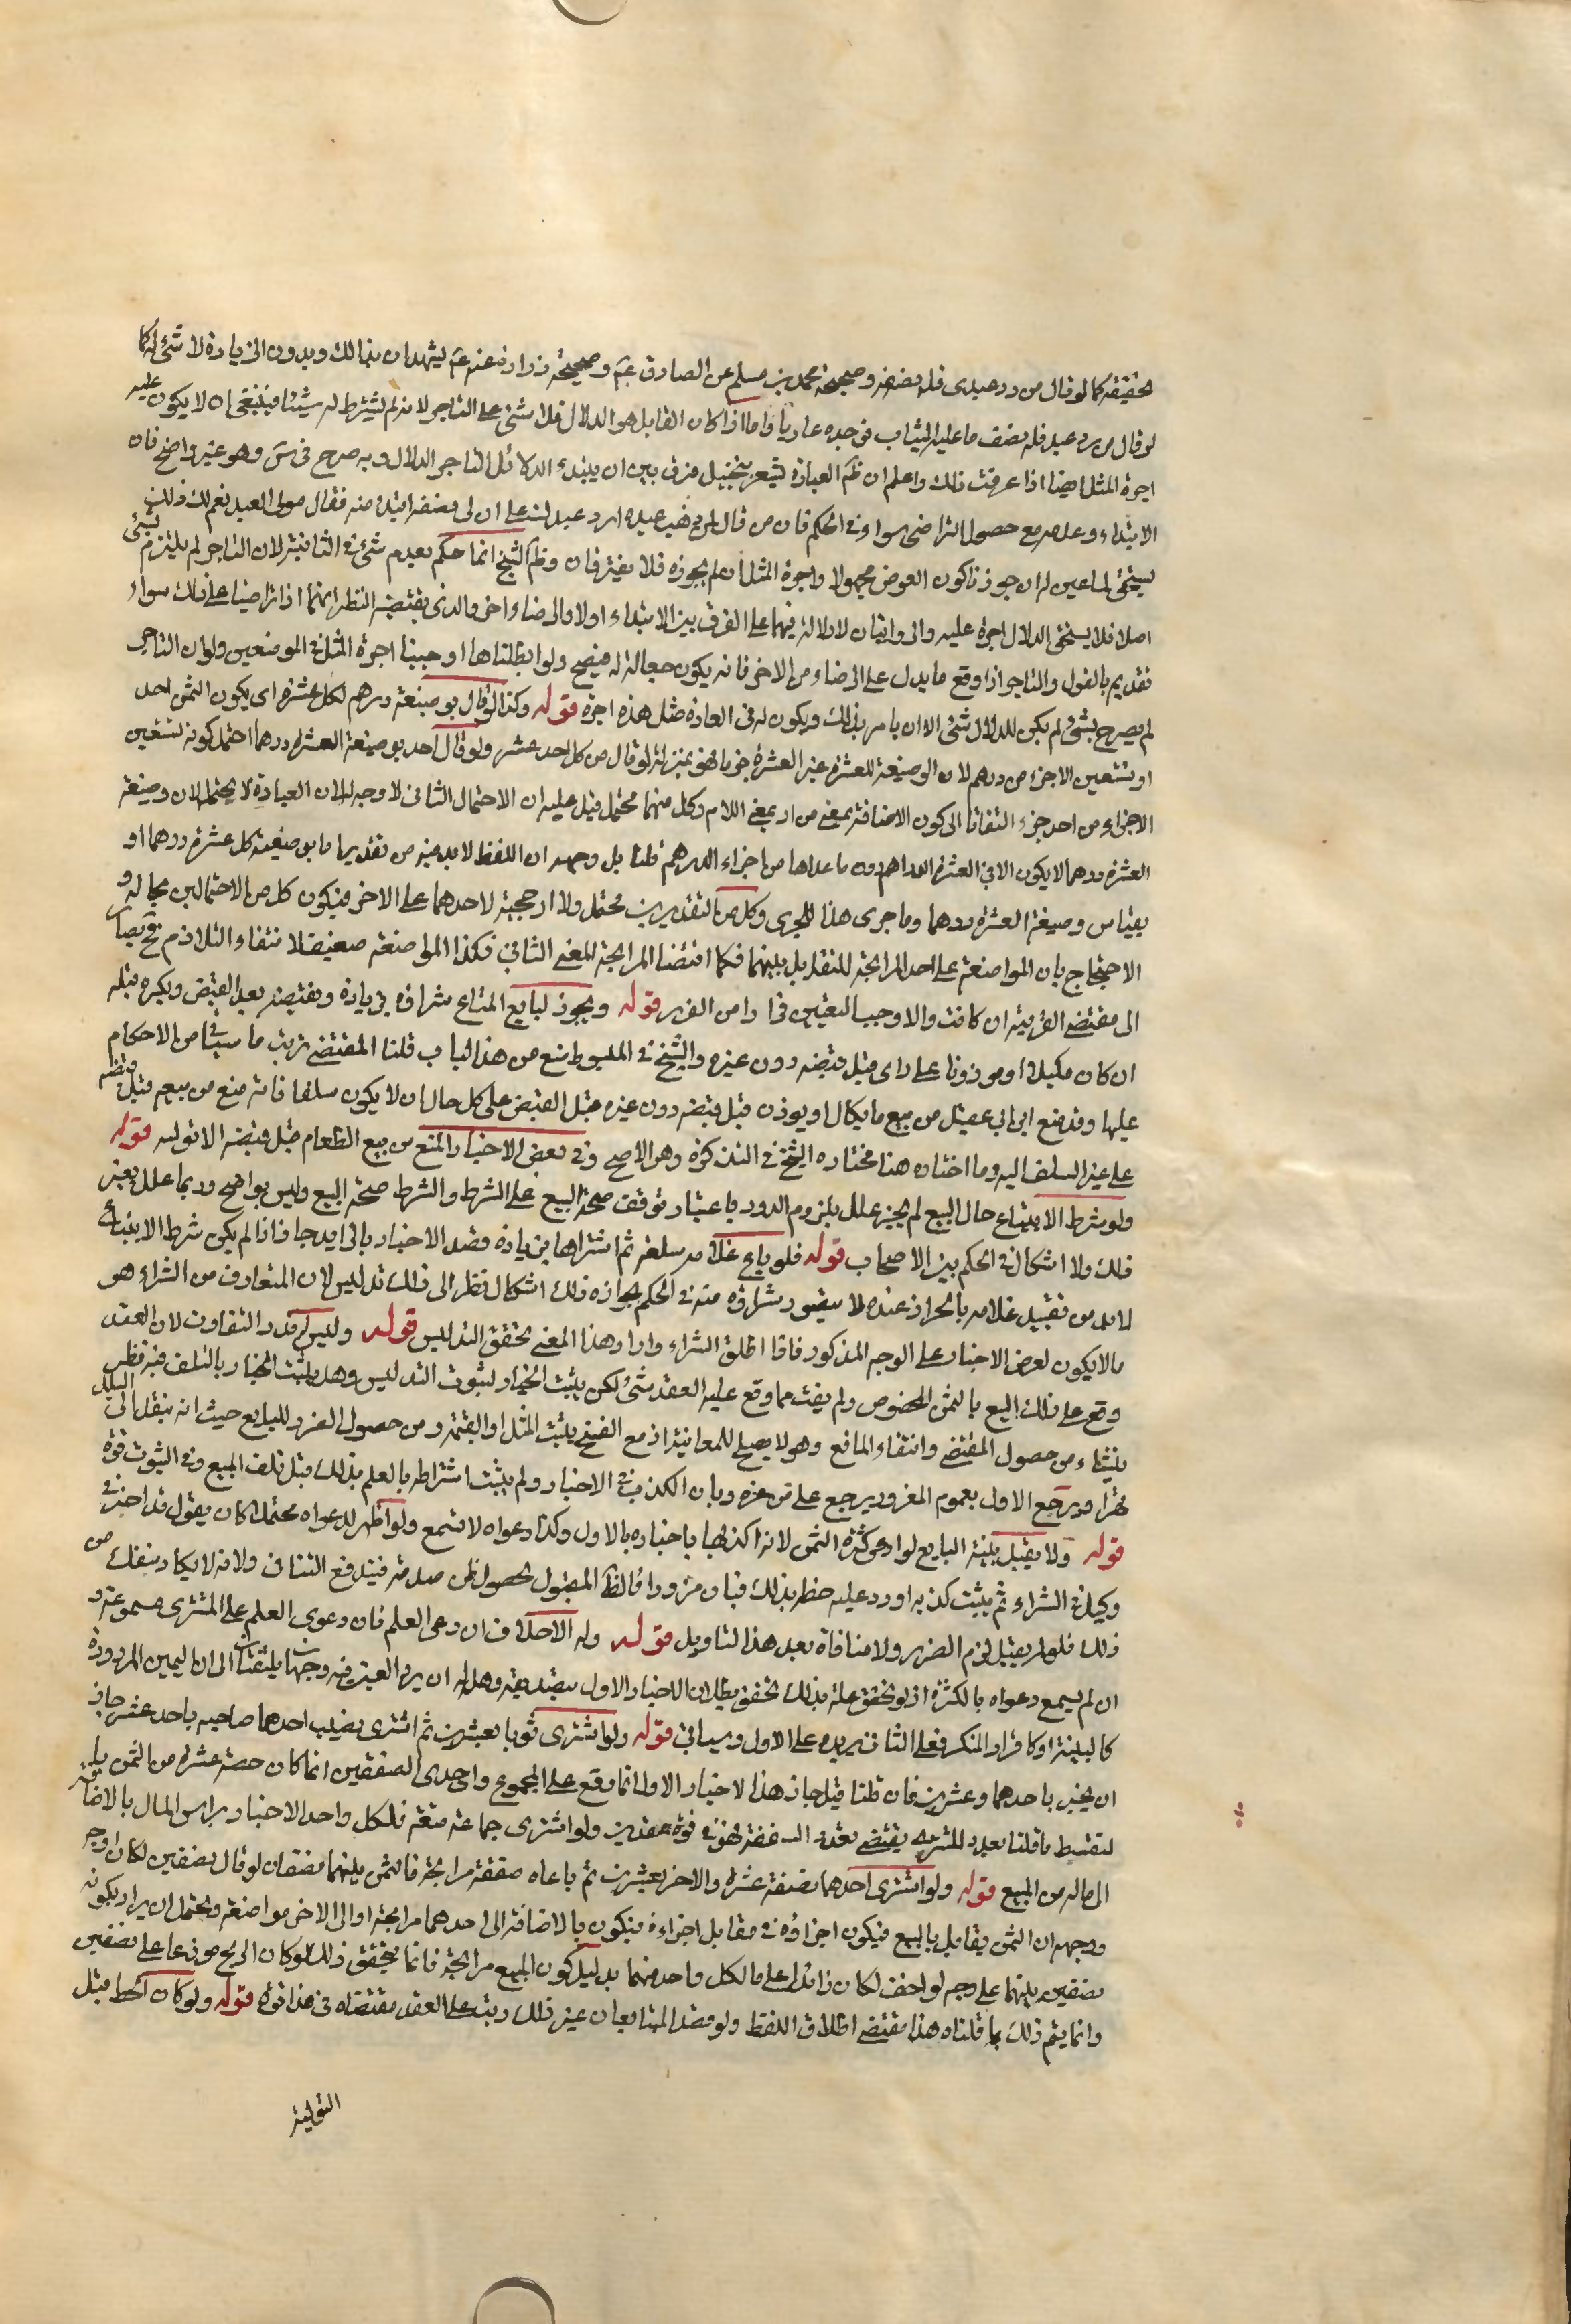 لحقيقته كما لو قال من رد عبدى فله نصفه وصحيحة محمد بن مسلم عن الصادق عم وصحيحة زرارة عنه عم يشهدان بذلك وبدون الزيادة لا شئ له كما
لو قال من رد عبد فله نصف ما عليه الثياب فوجده عاريا واما اذا كان القايل هو الدلال فلا شئ على التاجر لانه لم يشترط له شيئا فينبغى ان لا يكون عليه
اجرة المثل ايضا اذا عرفت ذلك واعلم ان ظم العبارة يشعر بتخييل فرق بين ان يبتدء الدلال التاجر الدلال وبه صرح فى س وهو غير واضح فان
الابتداء وعدمه مع حصول التراضى سواء فى الحكم فان من قال لمن ذهب عبده ارد عبدك على ان لى نصفه ابتداء منه فقال مولى العبد نعم لك ذلك
يستحق لما عين له ان جوزنا كون العوض مجهولا واجرة المثل ان لم يجوزه فلا يفترقان وظم الشيخ انما حكم بعدم شئ فى الثانية لان التاجر لم يلتزم بشئ
اصلا فلا يستحق الدلال اجرة عليه والروايتان لا دلالة فيهما على الفرق بين الابتداء اولا والرضاء اخر والذى يقتضيه النظر انهما اذا تراضيا على ذلك سواء
تقديم بالقول والتاجر اذا وقع ما يدل على الرضاء من الاخر فانه يكون جعالة له فيصح ولو ابطلناها اوجبنا اجرة المثل فى الموضعين ولو ان التاجر
لم يصرح بشئ لم يكن للدلال شئ الا ان يامر بذلك ويكون له فى العادة مثل هذه اجرة قوله وكذا لو قال بوضيعة درهم لكل عشرة اى يكون الثمن احد
او يتعين الاجزء من درهم لان الوضيعة للعشرة غير العشرة جزما فهو بمنزلة لو قال من كل احد عشر ولو قال احد بوضيعة العشرة درهما احتمل كونه تسعين
الاجزاء من احد جزء التفاتا الى كون الاضافة بمعنى من او بمعنى اللام وكل منهما محتمل قيل عليه ان الاحتمال الثانى لا وجه له لان العبارة لا يحتمله لان وضيعة
العشرة درهما لا يكون الا فى العشرة الدراهم دون ما عداها من اجزاء الدرهم قلنا بل وجهه ان اللفظ لا بد فيه من تقدير اما بوضيعة كل عشرة درهما او
بقياس وضيعة العشرة درهما وما جرى هذا المجرى وكل من التقديرين محتمل ولا ارجحية لاحدهما على الاخر فيكون كل من الاحتمالين بحاله و
الاحتجاج بان المواضعة على حد المرابحة للتقابل بينهما فكما اقتضت المرابحة المعنى الثانى فكذا المواضعة ضعيف لانتفاء التلازم فح يصار
الى مقتضى القرينة ان كانت والا وجب التعيين فرارا من الغرر قوله ويجوز لبايع المتاع شراؤه بزيادة ونقيصة بعد القبض ويكره قبله
ان كان مكيلا او موزونا على راى قبل قبضه دون غيره والشيخ فى المبسوط منع من هذا الباب قلنا المقتضى ترتب ما سياتى من الاحكام
عليها وقد منع ابن ابى عقيل من بيع ما يكال او يوزن قبل قبضه دون غيره قبل القبض على كل حال ان لا يكون سلفا فانه منع من بيعه قبل قبضه
على غير السلف اليه وما اختاره هنا مختاره الشيخ فى التذكرة وهو الاصح وفى بعض الاخبار المنع من بيع الطعام قبل قبضه الا توليه قوله
ولو شرط الابتياع حال البيع لم يجز علل بلزوم الدور باعتبار توقف صحة البيع على الشرط والشرط صحة البيع وليس بواضح وربما علل بغير
ذلك ولا اشكال فى الحكم بين الاصحاب قوله فلو باع غلامه سلعة ثم اشتراها بزيادة قصد الاخبار بالزايد جاز اذا لم يكن شرط الابتياع
لابد من تقييد غلامه بالحر اذ عبده لا يتصور شراؤه منه فى الحكم بجوازه ذلك اشكال نظرا الى ذلك تدليس لان المتعارف من الشراء هو
ما لا يكون لغرض الاخبار على الوجه المذكور فاذا اطلق الشراء واراد هذا المعنى تحقق التدليس قوله وليس له قدر التفاوت لان العقد
وقع على ذلك البيع بالثمن المخصوص ولم يفت مما وقع عليه العقد شئ لكن يثبت الخيار لثبوت التدليس وهل يثبت الخيار بالتلف فيه نظر
ينشاء من حصول المقتضى وانتفاء المانع وهو لا يصلح للمعانية اذ مع الفسخ يثبت المثل او القيمة ومن حصول الضرر للبايع حيث انه ينقل الى البدل
قهرا ويرجع الاول بعموم المغرور يرجع على من غره وبان الكذب فى الاخبار ولم يثبت اشتراطه بالعلم بذلك قبل تلف المبيع وفى الثبوت قوة
قوله ولا يقبل بينة البايع لو ادعى كثرة الثمن لانه اكذبها باخباره بالاول وكذا دعواه لا تسمع ولو اظهر لدعواه محتملا كان يقول قد اخبرنى
وكيلى فى الشراء ثم يثبت كذبه او ورد عليه خط بذلك فبان مزورا فالظ المقبول لحصول ظن صدقه فيندفع التنافى ولانه لا يكاد ينفك من
ذلك فلو لم يقبل لزم الضرر ولا منافاة بعد هذا التاويل قوله وله الاحلاف ان ادعى العلم فان دعوى العلم على المشترى مسموعة و
ان لم يسمع دعواه بالكثرة اذ لو تحقق علمه بذلك تحقق بطلان الاخبار الاول بتصديقه وهل له ان يرد اليمين فيه وجهان يلتفتان الى ان اليمين المردودة
كالبينة او كاقرار المنكر فعلى الثانى يرد وعلى الاول وسياتى قوله ولو اشترى ثوبا بعشرين ثم اشترى نصيب احدهما صاحبه باحد عشر جاز
ان يخبر باحدهما وعشرين فان قلنا قيل جاز هذا الاخبار الاول انما وقع على المجموع واحدى الصفقتين انما كان حصة عشرة من الثمن باعتبار
لتقسيط ما قلنا بعدد المشترى يقتضى تعدد الصفقة فهو فى قوة عقدين ولو اشترى جماعة صفقة فلكل واحد الاخبار براس المال بالاضافة
الى ماله من المبيع قوله ولو اشترى احدهما نصفه عشرة والاخر بعشرين ثم باعاه صفقة مرابحة فالثمن بينهما نصفان لو قال نصفين لكان اوجه
ووجهه ان الثمن يقابل بالبيع فيكون اجزاؤه فى مقابل اجزاءه فيكون بالاضافة الى احدهما مرابحة او الى الاخر مواضعة ويحتمل ان يراد بكونه
نصفين بينهما على وجه لو احف لكان زائدا على ما لكل واحد منهما بدليل كون البيع مرابحة فانما يتحقق ذلك لو كان الربح موزعا على نصفين
وانما يتم ذلك بما قلناه هذا مقتضى اطلاق اللفظ ولو قصد المتبايعان غير ذلك رتب على العقد مقتضاه فى هذا قوة قوله ولو كان الحط قبل
التولية